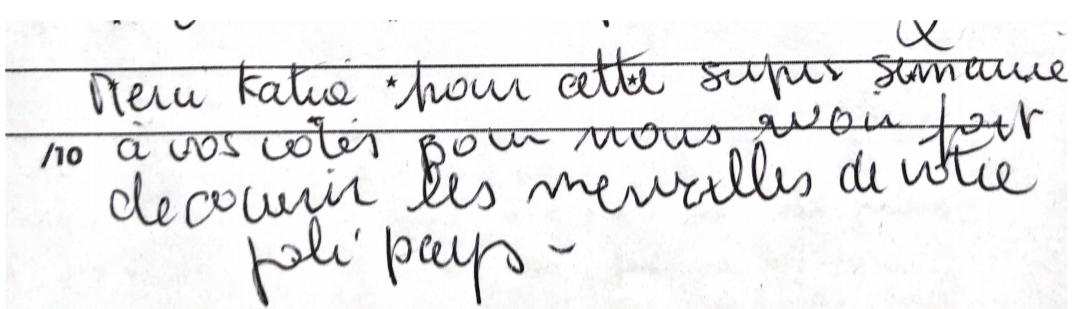 Merci Katia pour cette super semaine
/10 à vos côtés pour nous avoir fait
decouvrir les merveilles de votre
joli pays -